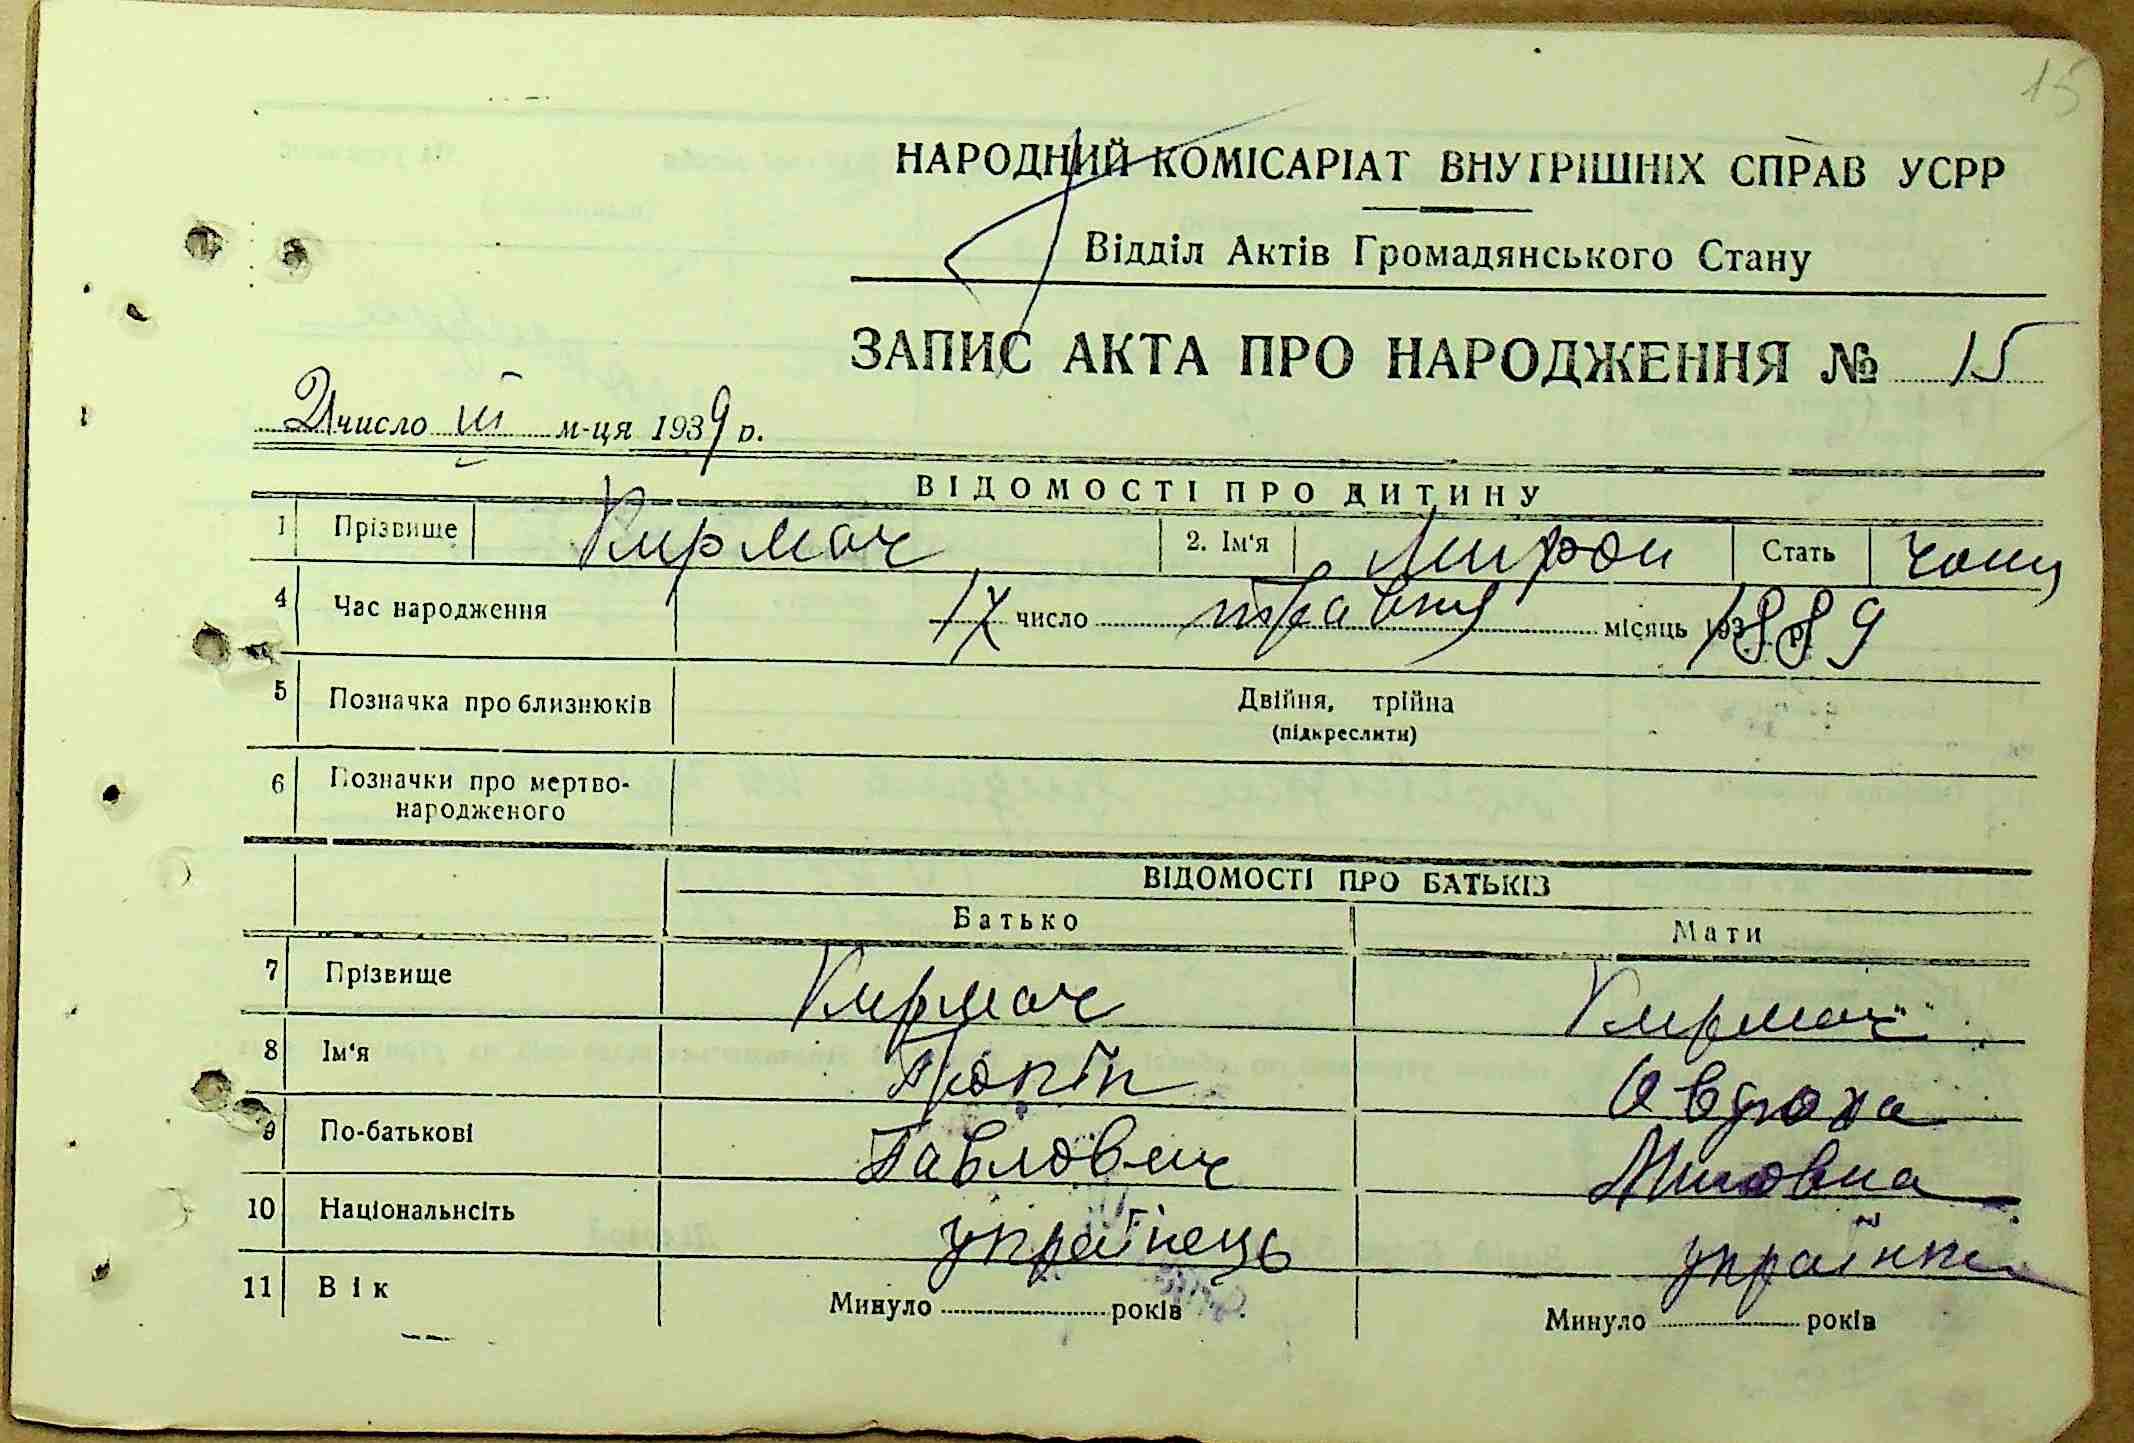 15
НАРОДНИЙ КОМІСАРІАТ ВНУТРІШНІХ СПРАВ УСРР
Відділ Актів Громадянського Стану
ЗАПИС АКТА ПРО НАРОДЖЕННЯ № 15
21 число III м-ця 1939 р.
ВІДОМОСТІ ПРО ДИТИНУ
1 Прізвище Кирмач 2. Ім'я Мирон Стать чол
4 Час народження 17 число травня місяць 1889
5 Позначка про близнюків Двійня, трійна
(підкреслити)
6 Позначки про мертво-
народженого
ВІДОМОСТІ ПРО БАТЬКІВ
Батько Мати
7 Прізвище Кирмач Кирмач
8 Ім'я Прокіп
9 По-батькові Павлович
10 Національність українець українка
11 Вік Минуло років Минуло років